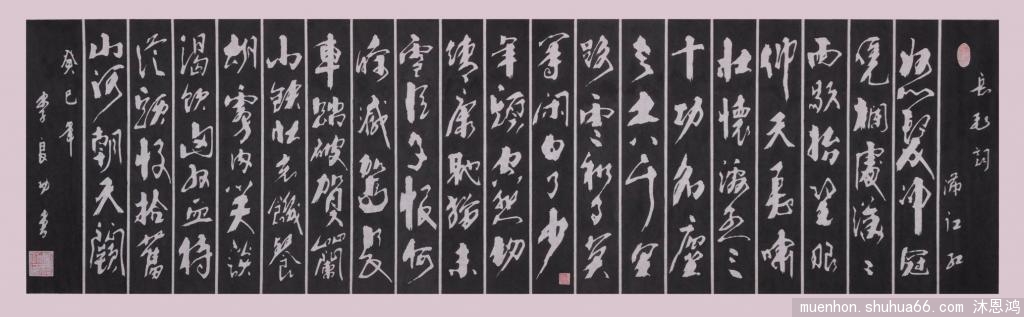 岳飛詞
滿江紅
怒髮冲冠
凭欄處瀟々
雨歇抬望眼
仰天長嘯
壯懷激烈三
十功名塵
與土八千里
路雲和月莫
等闲白了少
年頭空悲切
靖康恥猶未
雪臣子恨何
時滅駕長
車踏破賀蘭
山缺壯志饑餐
胡虜肉笑談
渴飲匈奴血待
從頭收拾舊
山河朝天闕
癸巳年
李良功書
muenhon.shuhua66.com 沐恩鸿